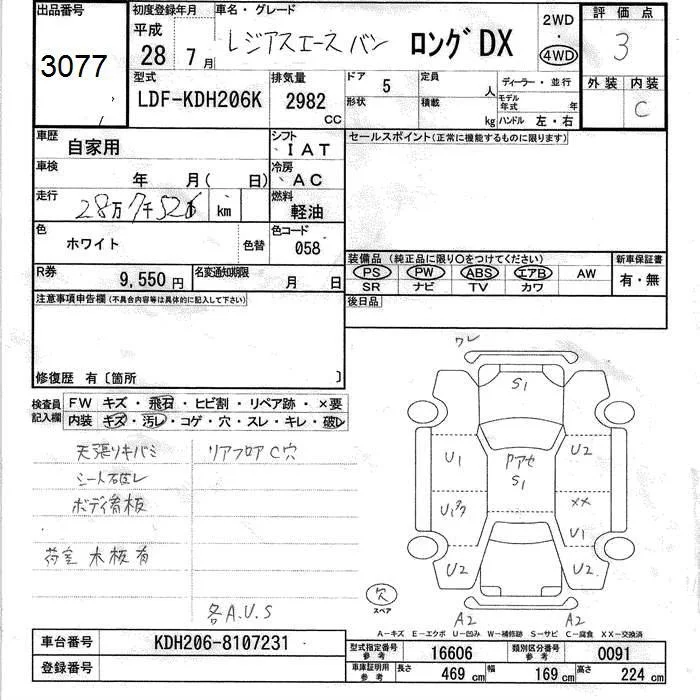 出品番号
3077
初度登録年月
平成
28年 7月
車名・グレード
レジアスエース バン ロング DX
2WD
・
4WD
評価点
3
外装 内装
C
型式
LDF-KDH206K
排気量
2982
CC
ドア 5
形状
定員 人
積載 kg
ディーラー・並行
モデル年式 年
ハンドル 左・右
車歴
自家用
シフト
IAT
車検 年 月( 日)
冷房
AC
走行
28万7千526 km
燃料
軽油
色
ホワイト
色替
色コード
058
R券
9,550円
名変通知期限 月 日
セールスポイント(正常に機能するものに限ります)
装備品(純正品に限り○をつけてください)
PS PW ABS エアB AW
SR ナビ TV カワ
新車保証書
有・無
後日品
注意事項申告欄(不具合内容等は具体的に記入して下さい)
修復歴 有〔箇所 〕
検査員記入欄
FW キズ・飛石・ヒビ割・リペア跡・×要
内装 キズ・汚レ・コゲ・穴・スレ・キレ・破レ
天張リキバミ
リアフロアC穴
シート破レ
ボディ看板
荷室 木板有
各A.U.S
ワレ
S1
U1
U2
アアセ
S1
XX
U1
U2
U2
欠
スペア
A2
A2
A－キズ E－エクボ U－凹み W－補修跡 S－サビ C－腐食 XX－交換済
車台番号
KDH206-8107231
登録番号
型式指定番号
参考
16606
類別区分番号
参考
0091
車庫証明用
参考
長さ 469 cm 幅 169 cm 高さ 224 cm